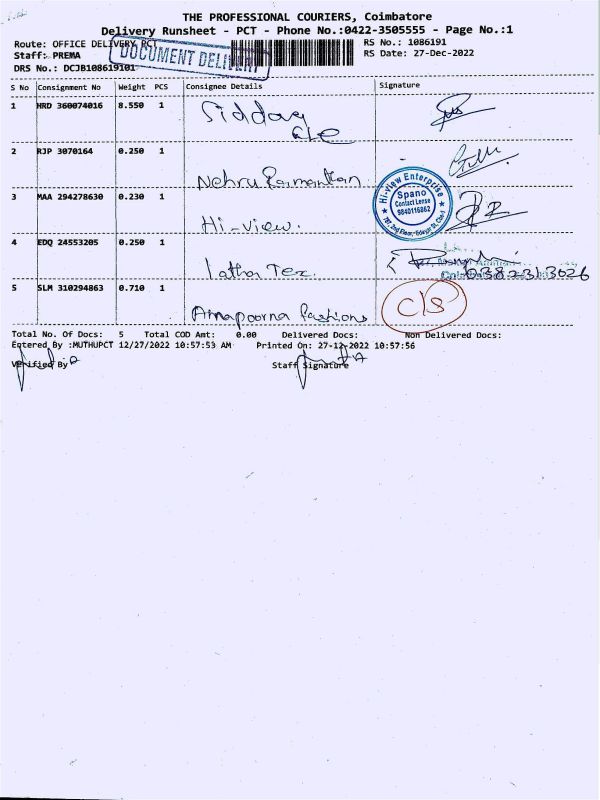 THE PROFESSIONAL COURIERS, Coimbatore
Delivery Runsheet - PCT - Phone No.:0422-3505555 - Page No.:1
Route: OFFICE DELIVERY PCT
RS No.: 1086191
Staff: PREMA
RS Date: 27-Dec-2022
DOCUMENT DELIVERY
DRS No.: DCJB108619101
S No Consignment No Weight PCS Consignee Details Signature
1 HRD 360074016 8.550 1 Siddaq
2 RJP 3070164 0.250 1
Nehru
3 MAA 294278630 0.230 1
Hi-view.
Hi-view Enterprise
Spano
Contact Lense
9840116862
4 EDQ 24553205 0.250 1
Latha Tex.
5 SLM 310294863 0.710 1
Annapoorna Fashions
C/S
Total No. Of Docs: 5 Total COD Amt: 0.00 Delivered Docs: Non Delivered Docs:
Entered By :MUTHUPCT 12/27/2022 10:57:53 AM Printed On: 27-12-2022 10:57:56
Verified By Staff Signature